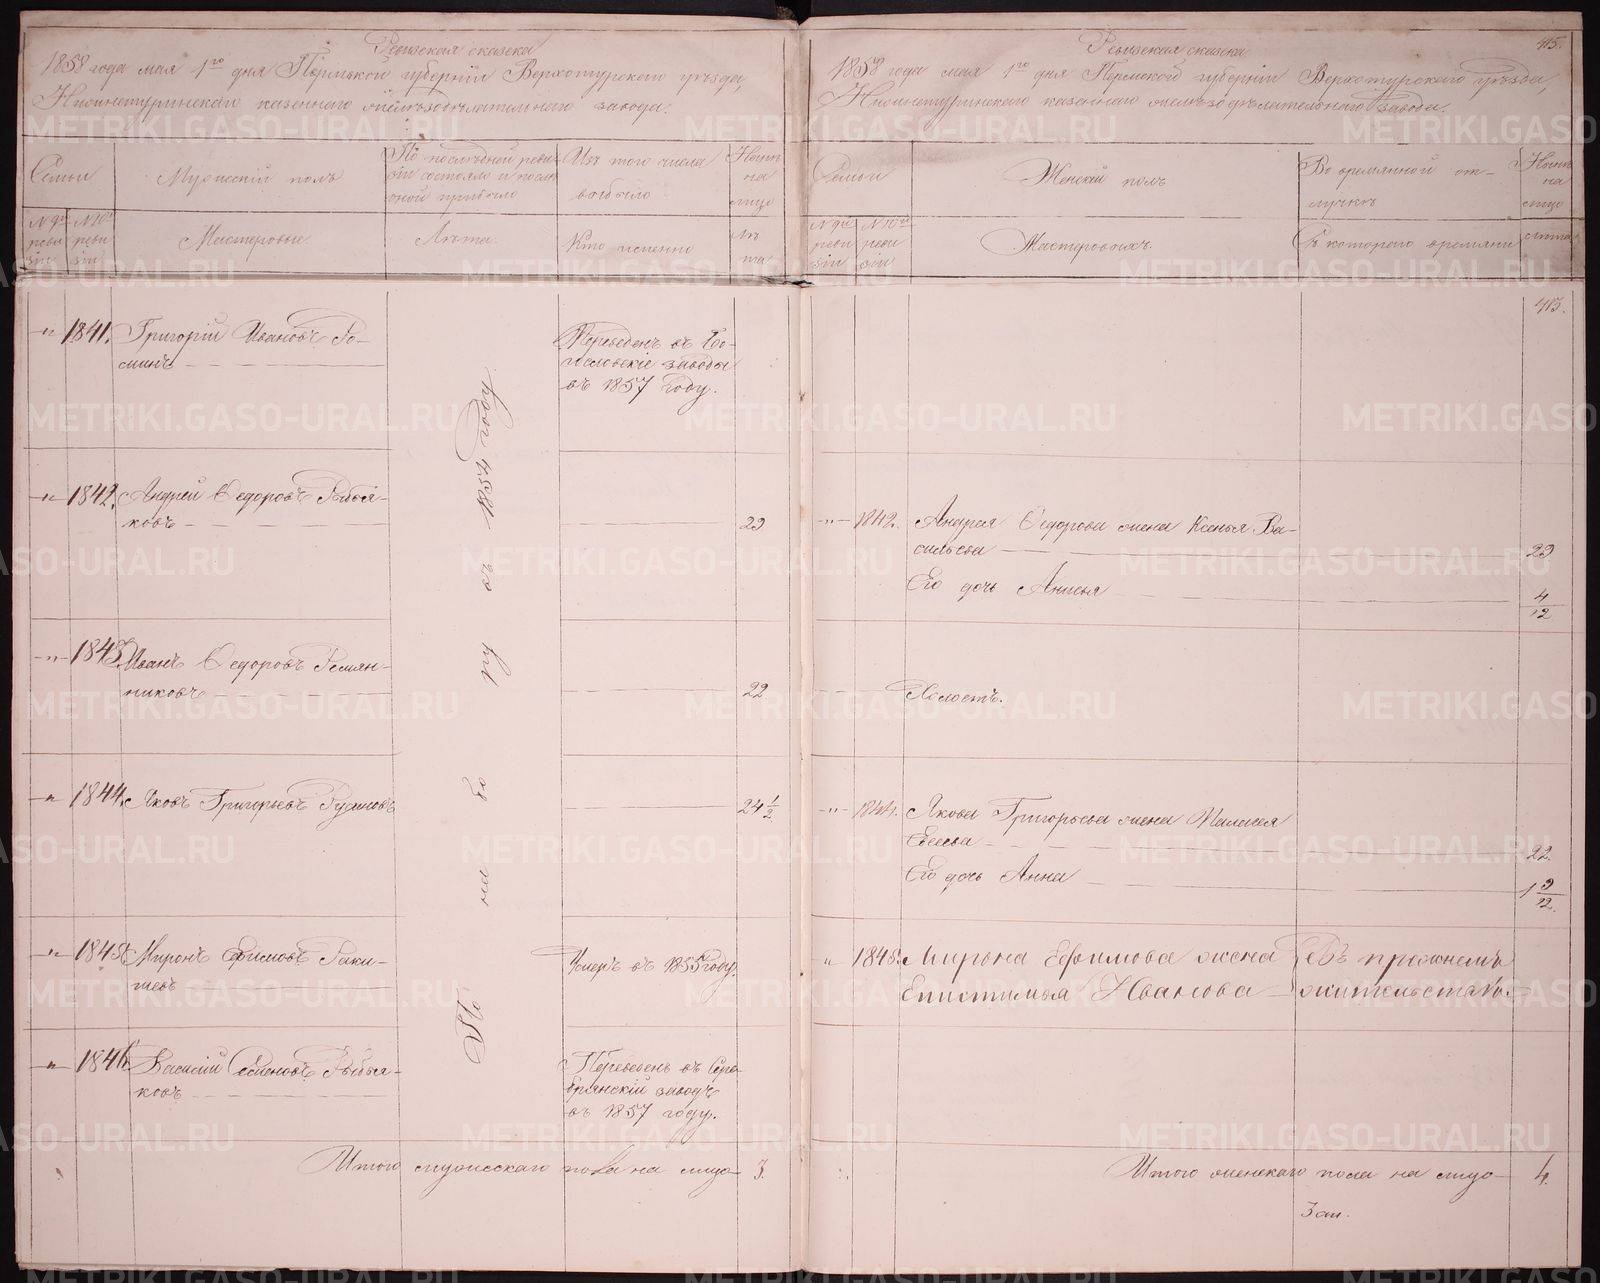 Ревизская сказка
1858 года мая 1го дня Пермской губернiи Верхотурскаго уѣзда,
Нижнетуринскаго казеннаго желѣзодѣлательнаго завода.
Семьи
Мужескiй полъ
По послѣдней реви-
зiи состояло и после
оной прибыло
Изъ того числа
выбыло
Нынѣ
на
лицо
№ 9й
реви
зiи
№ 10й
реви
зiи
Мастеровые
Лѣта.
Кто именно
Лѣ
та
" 1841. Григорiй Ивановъ Ро-
минъ
Переведенъ въ Бо-
гословскiе заводы
въ 1857 году.
" 1842. Андрей Ѳедоровъ
ковъ 29
" 1843. Иванъ Ѳедоровъ Ремян-
никовъ 22
" 1844. Яковъ Григорьевъ 24 1/2
" 1845. Миронъ Ефимовъ Раки-
шевъ
Умеръ въ 1855 году.
" 1846. Василiй Семеновъ
ковъ
Переведенъ въ Сере-
брянскiй заводъ
въ 1857 году.
на во въ 1854 году
Итого мужескаго пола на лицо 3.
415.
Ревизская сказка
1858 года мая 1го дня Пермской губернiи Верхотурскаго уѣзда,
Нижнетуринскаго казеннаго желѣзодѣлательнаго завода.
Семьи
Женскiй полъ
Во времянной от-
лучкѣ
Нынѣ
на
лицо
№ 9й
реви
зiи
№ 10й
реви
зiи
Мастеровыхъ.
Съ котораго времяни
лѣта
415.
" 1842. Андрея Ѳедорова жена Ксенья Ва-
сильева 29
Его дочь Анисья 4/12
Холостъ.
" 1844. Якова Григорьева жена Палагея
22.
Его дочь Анна 1 9/12.
" 1845. Мирона Ефимова жена
Епистимья Иванова
Въ прежнемъ
жительствѣ.
Итого женскаго пола на лицо 4.
METRIKI.GASO-URAL.RU